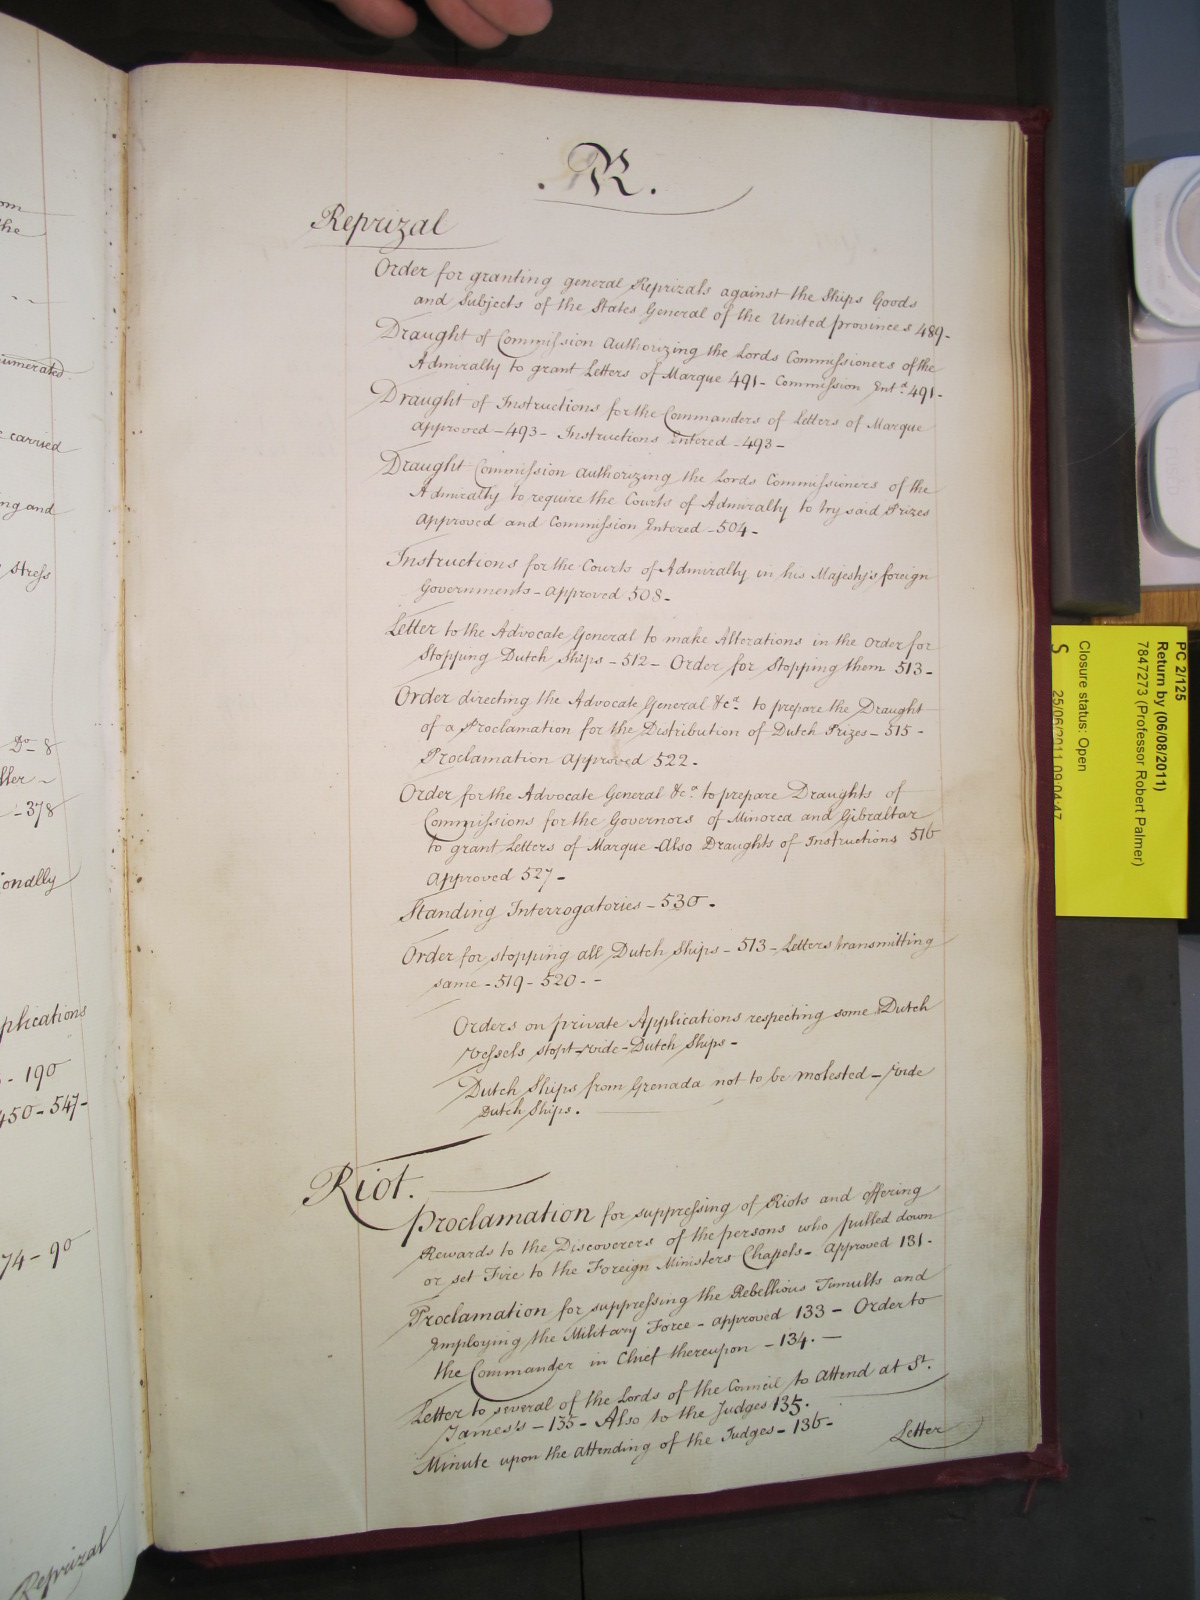 om
the
numerated
carried
ng and
stress
Do 8
ller -
- 378
onally
plications
- 190
450 - 547 -
74 - 90
Reprizal
. R .
Reprizal
Order for granting general Reprizals against the Ships Goods
and Subjects of the States General of the United provinces 489 -
Draught of Commission Authorizing the Lords Commissioners of the
Admiralty to grant Letters of Marque 491 - Commission Entd. 491 -
Draught of Instructions for the Commanders of Letters of Marque
approved - 493 - Instructions Entered - 493 -
Draught Commission authorizing the Lords Commissioners of the
Admiralty to require the Courts of Admiralty to try said Prizes
approved and Commission Entered - 504 -
Instructions for the Courts of Admiralty in his Majesty's foreign
Governments - approved 508 -
Letter to the Advocate General to make Alterations in the order for
Stopping Dutch Ships - 512 - Order for Stopping them 513 -
Order directing the Advocate General &ca. to prepare the Draught
of a Proclamation for the Distribution of Dutch Prizes - 515 -
Proclamation approved 522 -
Order for the Advocate General &ca. to prepare Draughts of
Commissions for the Governors of Minorca and Gibraltar
to grant Letters of Marque - Also Draughts of Instructions 516
approved 527 -
Standing Interrogatories - 530 -
Order for stopping all Dutch Ships - 513 - Letters transmitting
same - 519 - 520 - -
Orders on private Applications respecting some Dutch
Vessels stopt - vide - Dutch Ships -
Dutch Ships from Grenada not to be molested - vide
Dutch Ships.
Riot.
Proclamation for suppressing of Riots and offering
Rewards to the Discoverers of the persons who pulled down
or set Fire to the Foreign Ministers Chapels - approved 131 -
Proclamation for suppressing the Rebellious Tumults and
Employing the Military Force - approved 133 - Order to
the Commander in Chief thereupon - 134. -
Letter to several of the Lords of the Council to attend at St.
James's - 135 - Also to the Judges 135.
Minute upon the attending of the Judges - 136 -
Letter
PC 2/125
Return by (06/08/2011)
7847273 (Professor Robert Palmer)
Closure status: Open
S 25/06/2011 09:04:47